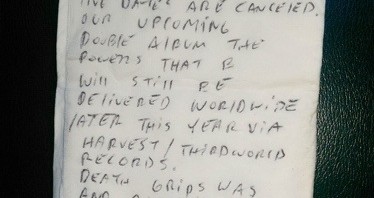 LIVE DATES ARE CANCELED.
OUR UPCOMING
DOUBLE ALBUM THE
POWERS THAT B
WILL STILL BE
DELIVERED WORLDWIDE
LATER THIS YEAR VIA
HARVEST/THIRDWORLD
RECORDS.
DEATH GRIPS WAS
AND